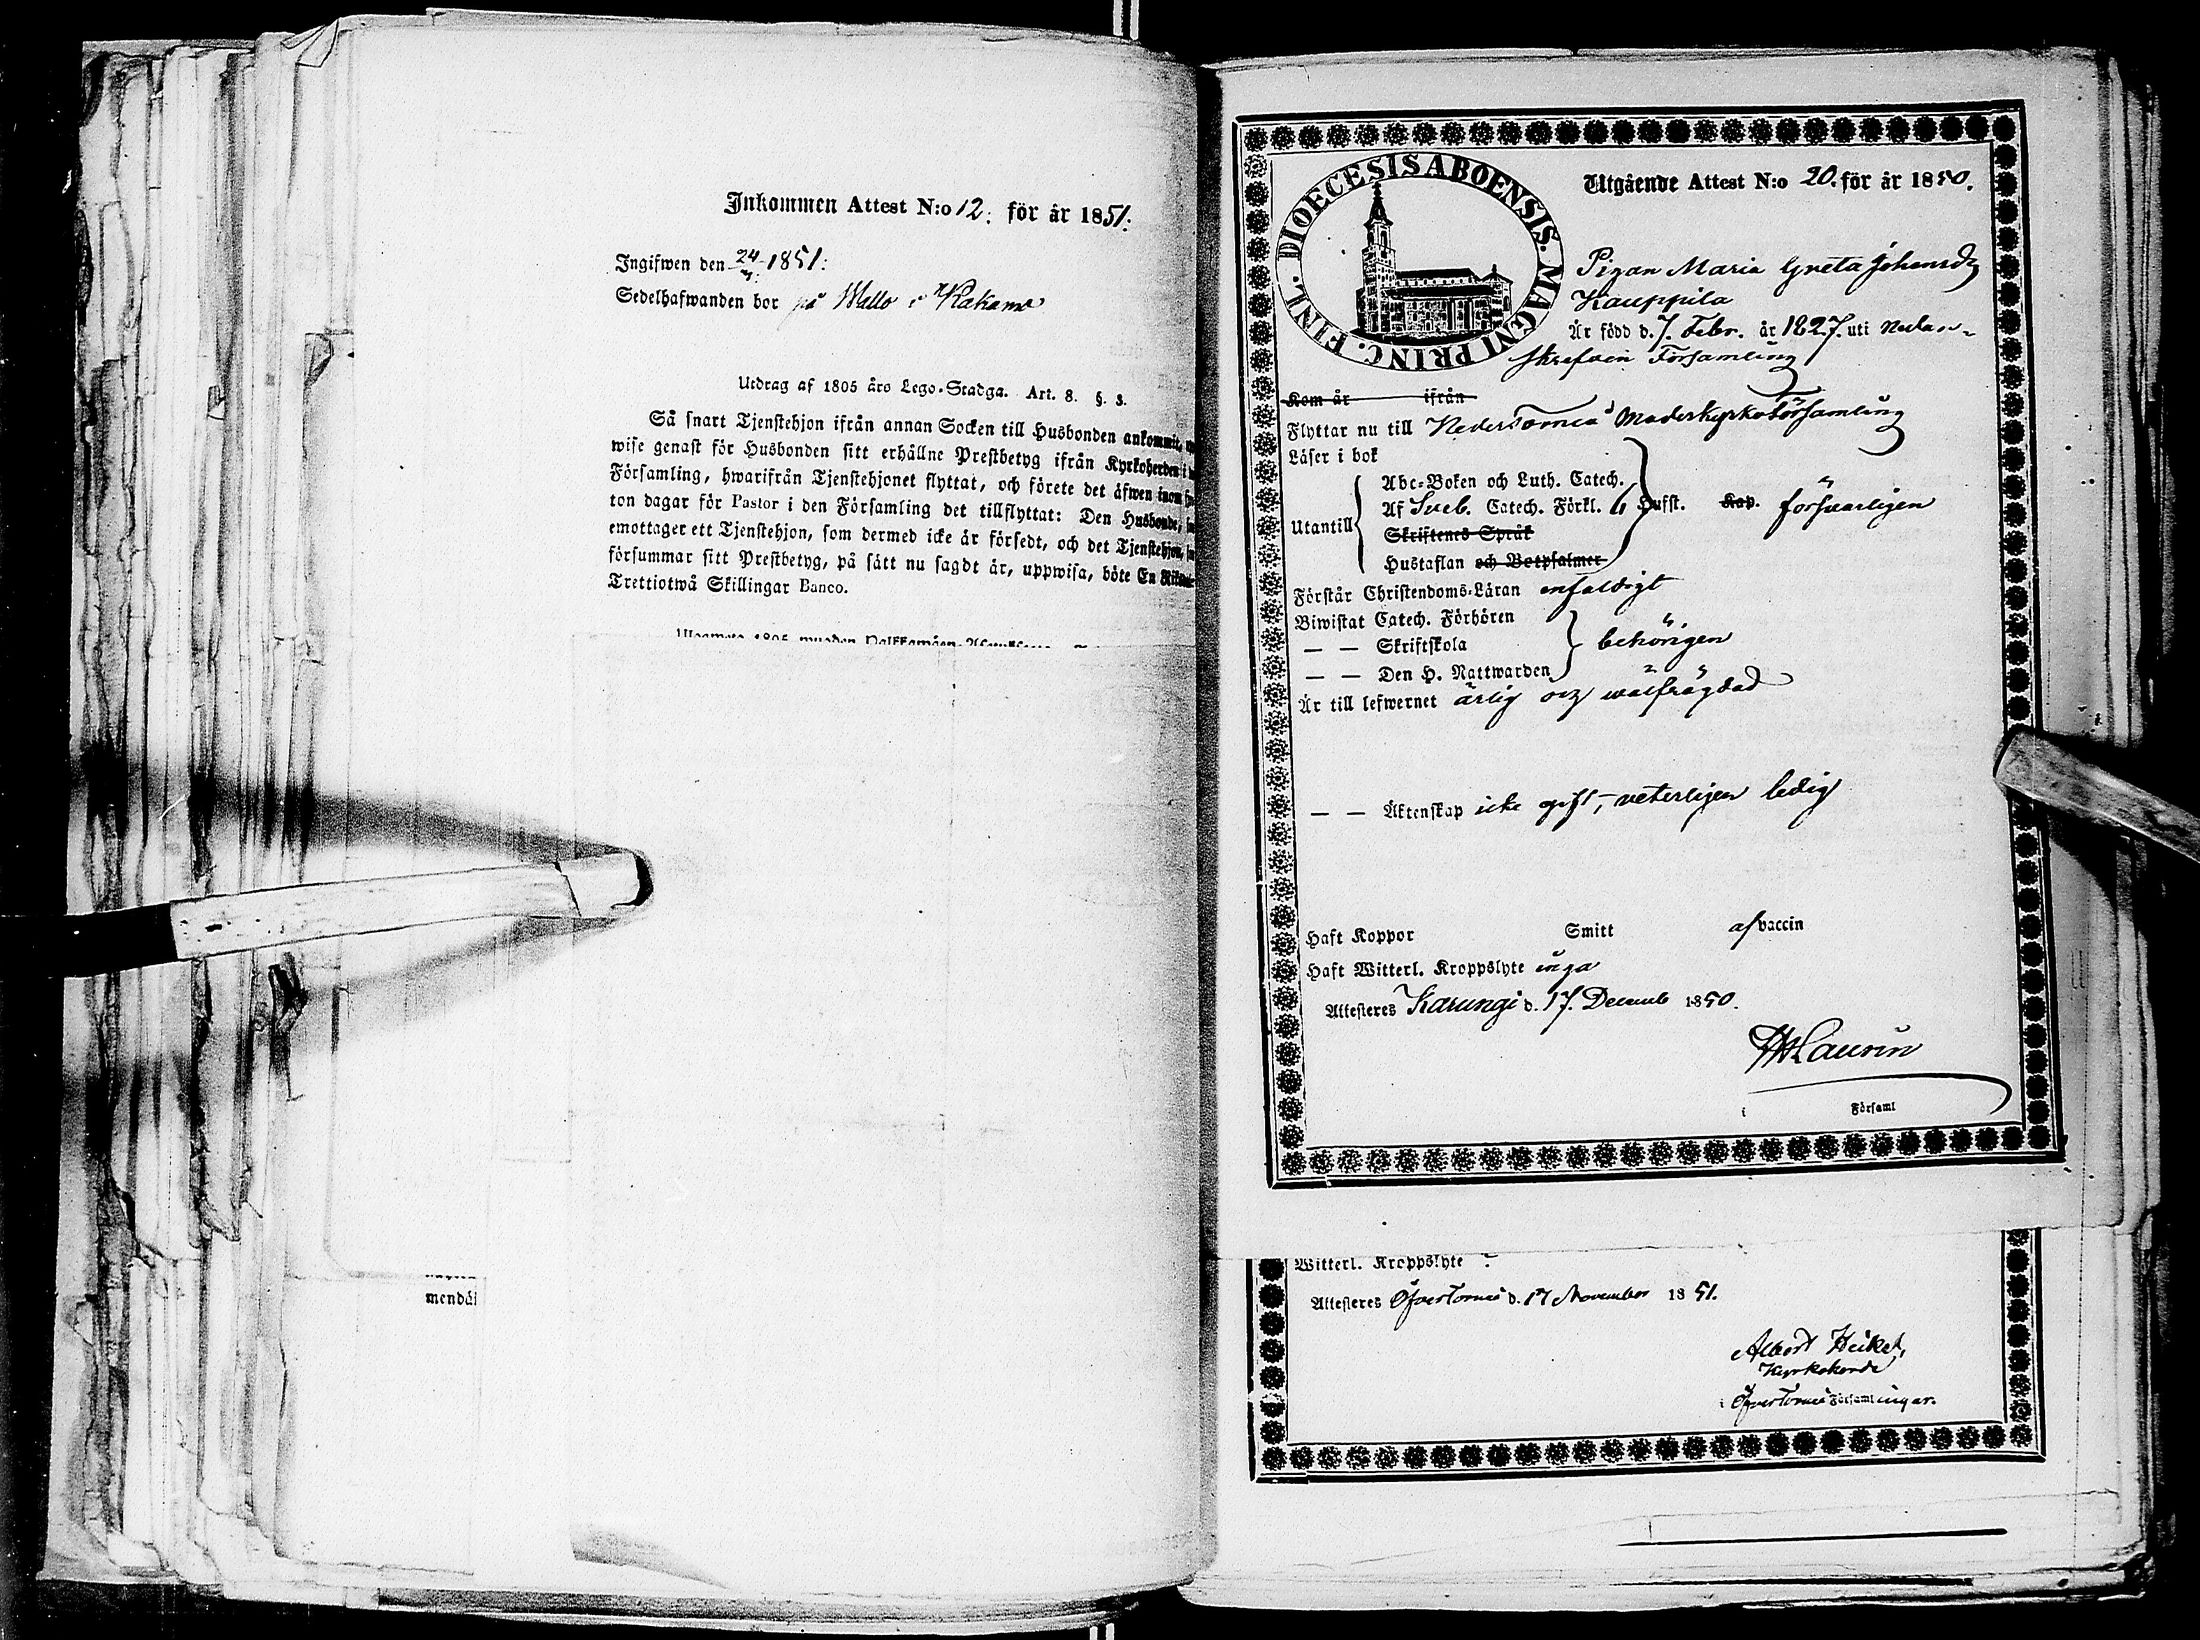 Inkommen Attest N:o 12. för år 1851.
Ingifwen den 24/3 1851.
Sedelhafwanden bor på Wallo i Kakamo
Utdrag af 1805 års Lego-Stadga. Art. 8. §. 3.
Så snart Tjenstehjon ifrån annan Socken till Husbonden ankommit,
wise genast för Husbonden sitt erhållne Prestbetyg ifrån Kyrkoherden i
Församling, hwarifrån Tjenstehjonet flyttat, och förete det äfwen inom
ton dagar för Pastor i den Församling det tillflyttat: Den Husbonde,
emottager ett Tjenstehjon, som dermed icke är försedt, och det Tjenstehjon,
försummar sitt Prestbetyg, på sätt nu sagdt är, uppwisa, böte En
Trettiotwå Skillingar Banco.
mendäi
DIOECESIS ABOENSIS. MAGNI PRINC. FINL.
Utgående Attest N:o 20. för år 1850.
Pigan Maria Greta Johansdr
Kauppila
Är född d. 7. Febr. år 1827. uti Nedan-
skrefven Församling
Kom år ifrån
Flyttar nu till Nedertorneå Moderkyrkoförsamling
Läser i bok
Abc-Boken och Luth. Catech.
Utantill Af Sveb. Catech. Förkl. 6 Hufst. Kap. försvarligen
Skriftenes Språk
Hustaflan och Botpsalmer
Förstår Christendoms-Läran enfaldigt
Biwistat Catech. Förhören
— — Skriftskola behörigen
— — Den H. Nattwarden
Är till lefwernet ärlig och wälfrägdad
— — Äktenskap icke gift, veterligen ledig
Haft Koppor Smitt af vaccin
Haft Witterl. Kroppslyte inga
Attesteres Karungi d. 17. Decemb 1850.
Laurin
i Församl
Witterl. Kroppslyte
Attesteres ÖfverTorneå d. 17 November 1851.
Albert Heikel,
Kyrkoherde
i ÖfverTorneå Församlingar.